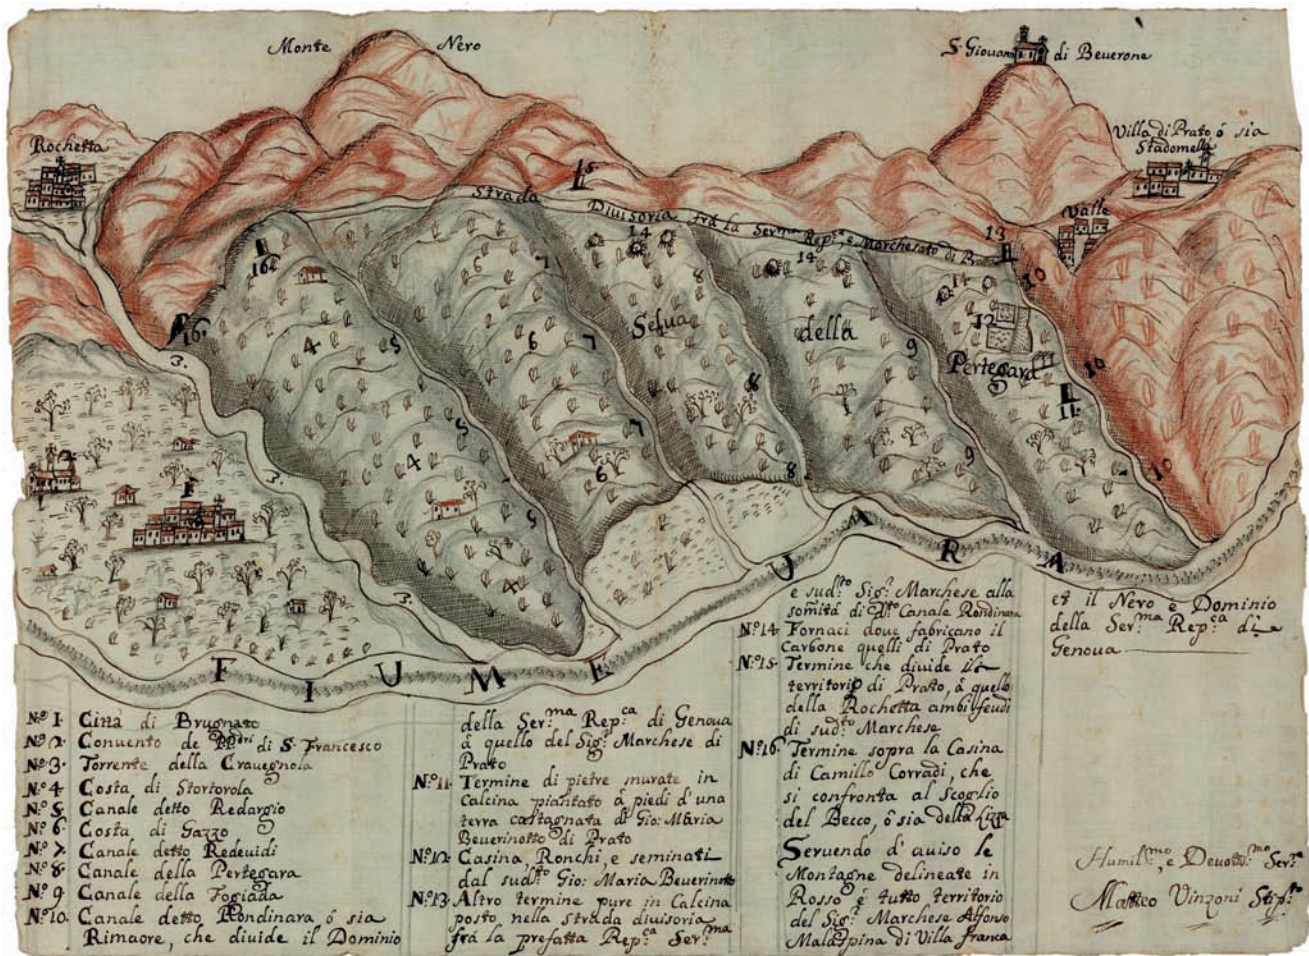 Monte Nero
S. Giouani di Beuerone
Rochetta
Villa di Prato ó sia
Stadomella
Valle
Strada Diuisoria frá la Ser.ma Rep.ca, e Marchesato di Prato
15.
16.
16.
14
14
14
13
12
11.
10
10
10
3.
3.
3.
3.
4
4
4
5
5
5
6
6
6
7
7
7
8
8
8
9
9
Selua della Pertegara
FIUME UARA
N.º 1. Cittá di Brugnato
N.º 2. Conuento de PP.dri di S. Francesco
N.º 3. Torrente della Crauegnola
N.º 4 Costa di Stortorola
N.º 5 Canale detto Redargio
N.º 6. Costa di Gazzo
N.º 7 Canale detto Redeuidi
N.º 8. Canale della Pertegara
N.º 9 Canale della Fogiada
N.º 10. Canale detto Rondinara ó sia
Rimaore, che diuide il Dominio
della Ser.ma Rep.ca di Genoua
á quello del Sig.r Marchese di
Prato
N.º 11. Termine di pietre murate in
Calcina piantato á piedi d'una
terra castagnata di Gio: Maria
Beuerinotto di Prato
N.º 12. Casina, Ronchi, e seminati
dal sud.tto Gio: Maria Beuerinoto
N.º 13. Altro termine pure in Calcina
posto nella strada diuisoria
frá la prefatta Rep.ca Ser.ma
e sud.tto Sig.r Marchese alla
somitá di d.to Canale Rondinara
N.º 14. Fornaci doue fabricano il
Carbone quelli di Prato
N.º 15. Termine che diuide il
territorio di Prato, á quello
della Rochetta ambi feudi
di sud.tto Marchese
N.º 16. Termine sopra la Casina
di Camillo Corradi, che
si confronta al Scoglio
del Becco, ó sia della Lizza
Seruendo d'auiso le
Montagne delineate in
Rosso é tutto territorio
del Sig.r Marchese Alfonso
Malaspina di Villa franca
et il Nero é Dominio
della Ser.ma Rep.ca di
Genoua
Humil.mo, e Deuotto.mo Ser.re
Matteo Vinzoni